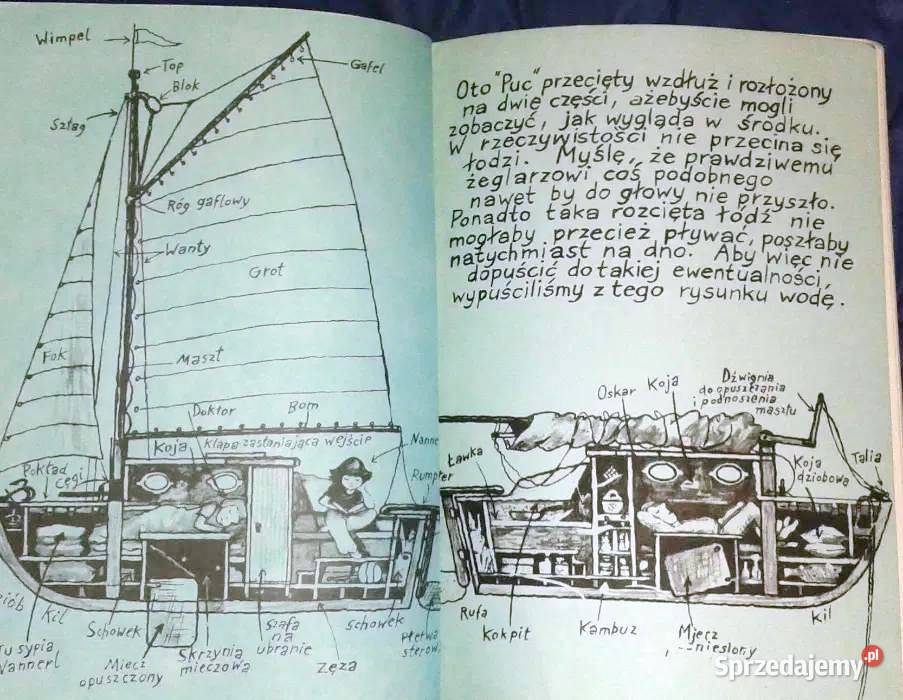 Wimpel
Top
Blok
Gafel
Sztag
Róg gaflowy
Wanty
Grot
Fok
Maszt
Doktor
Bom
Koja
Klapa zasłaniająca wejście
Nanne
Pokład
Cęgi
Rumpler
Kil
Schowek
Tu sypia
Nannerl
Miecz
opuszczony
Skrzynia
mieczowa
Szafa
na
ubranie
Zęza
Schowek
Płetwa
sterow
Oto "Puc" przecięty wzdłuż i rozłożony
na dwie części, ażebyście mogli
zobaczyć, jak wygląda w środku.
W rzeczywistości nie przecina się
łodzi. Myślę, że prawdziwemu
żeglarzowi coś podobnego
nawet by do głowy nie przyszło.
Ponadto taka rozcięta łódź nie
mogłaby przecież pływać, poszłaby
natychmiast na dno. Aby więc nie
dopuścić do takiej ewentualności,
wypuściliśmy z tego rysunku wodę.
Oskar
Koja
Dźwignia
do opuszczania
i podnoszenia
masztu
Ławka
Koja
dziobowa
Talia
Rufa
Kokpit
Kambuz
Miecz
uniesiony
Kil
Sprzedajemy.pl